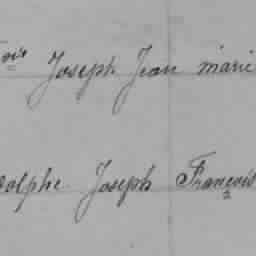 Joseph Jean marie
dolphe Joseph François